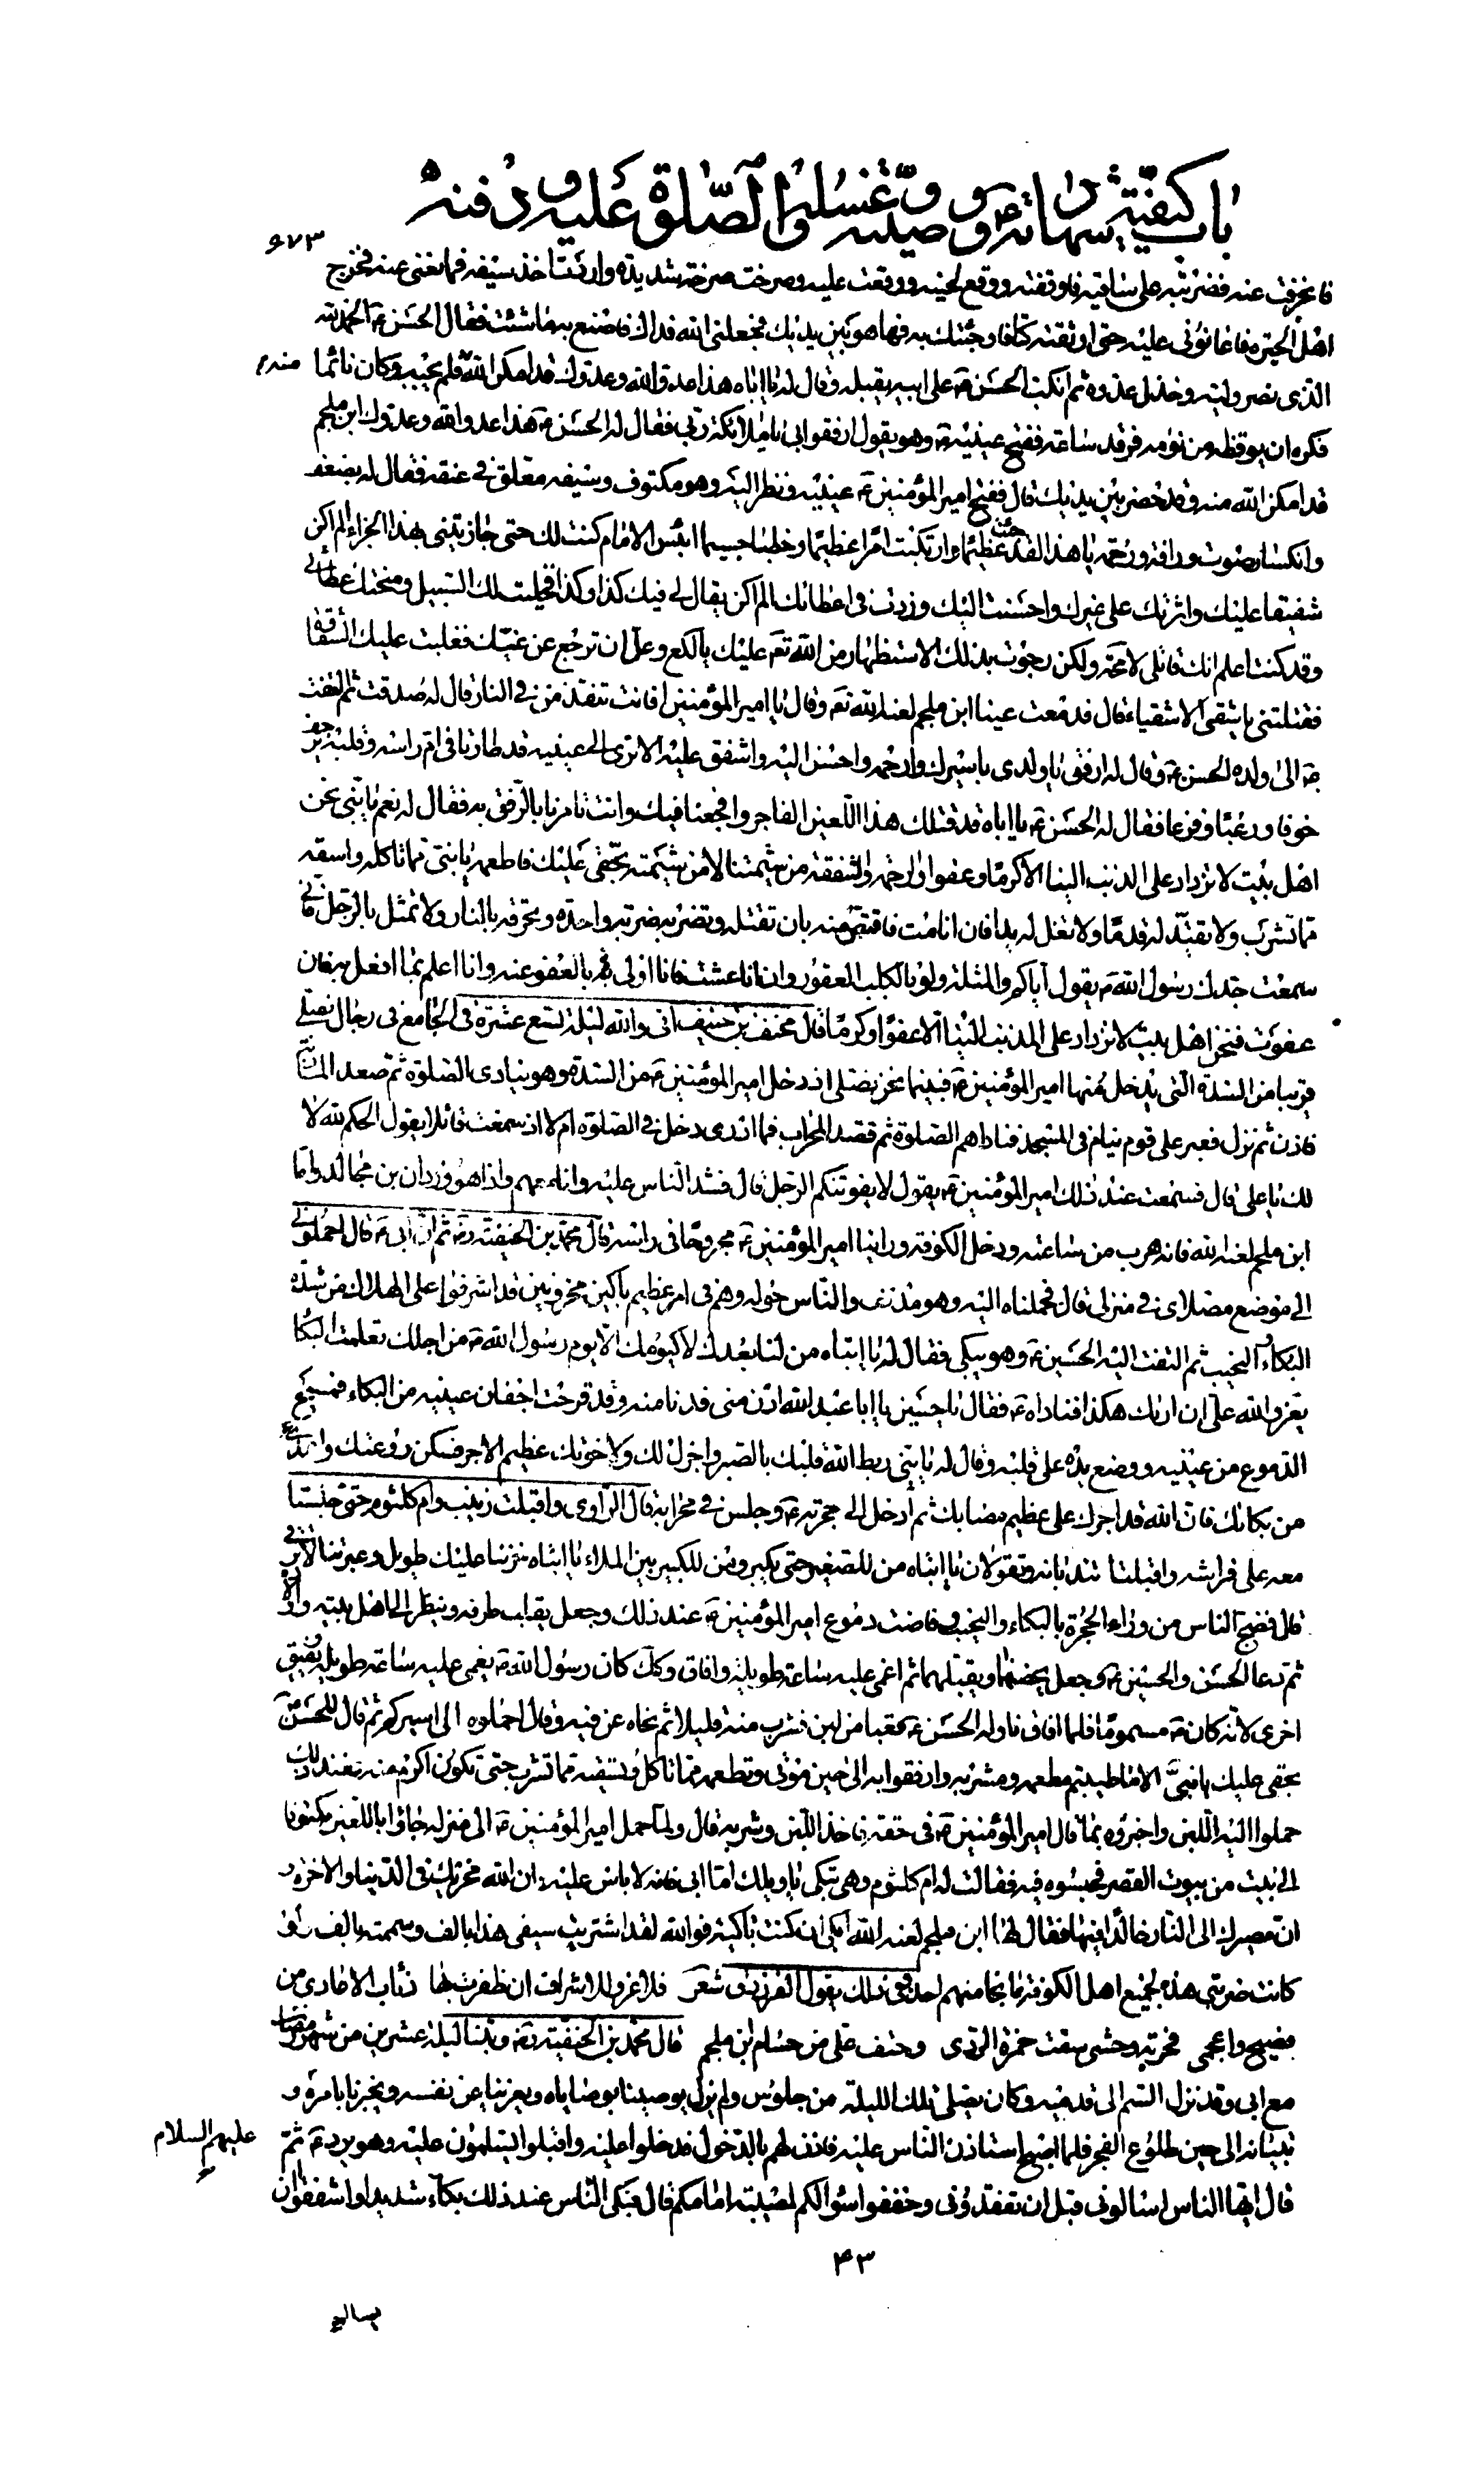 باب كيفيّة شهادته ع و وصيّته و غسله والصّلوة عليه و دفنه
٩٧٣
فانحرفت عنه فضربته على ساقيه فاوقفته ووقع لجنبه ووقعت عليه وصرخت صرخة شديدة واردت اخذ سيفه فمانعنى عنه فخرج
اهل الحيرة فاعانونى عليه حتى اوثقته كتافا وجئتك به فها هو بين يديك جعلنى الله فداك فاصنع به ما شئت فقال الحسن ع الحمد لله
الذى نصر وليه وخذل عدوه ثم انكب الحسن ع على ابيه يقبله وقال له يا اباه هذا عدو الله وعدوك قد امكن الله منه فلم يجبه وكان نائما
فكره ان يوقظه من نومه فرقد ساعة ففتح عينيه ع وهو يقول ارفقوا بى يا ملائكة ربى فقال له الحسن ع هذا عدو الله وعدوك ابن ملجم
قد امكن الله منه وقد حضر بين يديك قال ففتح امير المؤمنين ع عينيه ونظر اليه وهو مكتوف وسيفه معلق في عنقه فقال له بضعف
وانكسار صوت ورافة ورحمة يا هذا لقد جئت عظيما وارتكبت امرا عظيما وخطبا جسيما ابئس الامام كنت لك حتى جازيتنى بهذا الجزاء الم اكن
شفيقا عليك واثرتك على غيرك واحسنت اليك وزدت فى اعطائك الم اكن يقال لى فيك كذا وكذا فخليت لك السبيل ومنحتك عطائى
وقد كنت اعلم انك قاتلى لا محة ولكن رجوت بذلك الاستظهار من الله تع عليك يا لكع وعل ان ترجع عن غيك فغلبت عليك الشقاوة
فقتلتنى يا شقى الاشقياء قال فدمعت عينا ابن ملجم لعنه الله تع وقال يا امير المؤمنين افانت تنقذ من فى النار قال له صدقت ثم التفت
ع الى ولده الحسن ع وقال له ارفق يا ولدى باسيرك وارحمه واحسن اليه واشفق عليه الا ترى الى عينيه قد طارتا فى ام راسه وقلبه يرجف
خوفا ورعبا وفزعا فقال له الحسن ع يا اباه قد قتلك هذا اللعين الفاجر وافجعنا فيك وانت تامرنا بالرفق به فقال له نعم يا بنى نحن
اهل بيت لا نزداد على الذنب الينا الا كرما وعفوا والرحمة والشفقة من شيمتنا لا من شيمته بحقى عليك فاطعمه يا بنى مما تاكله واسقه
مما تشرب ولا تقيد له قدما ولا تغل له يدا فان انا مت فاقتص منه بان تقتله وتضربه ضربة واحدة وتحرقه بالنار ولا تمثل بالرجل فانى
سمعت جدك رسول الله ص يقول اياكم والمثلة ولو بالكلب العقور وان انا عشت فانا اولى به بالعفو عنه وانا اعلم بما افعل به فان
عفوت فنحن اهل بيت لا نزداد على المذنب الينا الا عفوا وكرما قال مخنف بن حنيف انى والله ليلة تسع عشرة فى الجامع فى رجال نصلى
قريبا من السدة التى يدخل منها امير المؤمنين ع فبينما نحن نصلى اذ دخل امير المؤمنين ع من السدة وهو ينادى الصلوة ثم صعد الماذنة
فاذن ثم نزل فعبر على قوم نيام فى المسجد فناداهم الصلوة ثم قصد المحراب فما ادرى دخل فى الصلوة ام لا اذ سمعت قائلا يقول الحكم لله لا
لك يا على قال فسمعت عند ذلك امير المؤمنين ع يقول لا يفوتنكم الرجل قال فشد الناس عليه وانا معهم واذا هو وردان بن مجالد واما
ابن ملجم لعنه الله فانه هرب من ساعته ودخل الكوفة وراينا امير المؤمنين ع مجروحا فى راسه قال محمد بن الحنفية ره ثم ان ابى ع قال احملونى
الى موضع مصلاى فى منزلى قال فحملناه اليه وهو مدنف والناس حوله وهم فى امر عظيم باكين محزونين قد اشرفوا على الهلاك من شدة
البكاء والنحيب ثم التفت اليه الحسين ع وهو يبكى فقال له يا ابتاه من لنا بعدك لا كيومك الا يوم رسول الله ص من اجلك تعلمت البكاء
يعز والله على ان اراك هكذا فناداه ع فقال يا حسين يا ابا عبد الله ادن منى فدنا منه وقد قرحت اجفان عينيه من البكاء فمسح
الدموع من عينيه ووضع يده على قلبه وقال له يا بنى ربط الله قلبك بالصبر واجزل لك ولاخوتك عظيم الاجر فسكن روعتك واهدا
من بكائك فان الله قد اجرك على عظيم مصابك ثم ادخل الى حجرته ع وجلس فى محرابه قال الراوى واقبلت زينب وام كلثوم حتى جلستا
معه على فراشه واقبلتا تندبانه وتقولان يا ابتاه من للصغير حتى يكبر ومن للكبير بين الملاء يا ابتاه حزننا عليك طويل وعبرتنا لا ترقى
قال فضج الناس من وراء الحجرة بالبكاء والنحيب وفاضت دموع امير المؤمنين ع عند ذلك وجعل يقلب طرفه وينظر الى اهل بيته واولاده
ثم دعا الحسن والحسين ع وجعل يحضنهما ويقبلهما ثم اغمى عليه ساعة طويلة وافاق وكك كان رسول الله ص يغمى عليه ساعة طويلة ويفيق
اخرى لانه كان ص مسموما فلما افاق ناوله الحسن ع قعبا من لبن فشرب منه قليلا ثم نحاه عن فيه وقال احملوه الى اسيركم ثم قال للحسن ع
بحقى عليك يا بنىّ الا ما طيبتم مطعمه ومشربه وارفقوا به الى حين موتى وتطعمه مما تاكل وتسقيه مما تشرب حتى تكون اكرم منه فعند ذلك
حملوا اليه اللبن واخبروه بما قال امير المؤمنين ع فى حقه فاخذ اللبن وشربه قال ولما حمل امير المؤمنين ع الى منزله جاؤا باللعين مكتوفا
الى بيت من بيوت القصر فحبسوه فيه فقالت له ام كلثوم وهى تبكى يا ويلك اما ابى فانه لا باس عليه وان الله مخزيك فى الدنيا والاخرة و
ان مصيرك الى النار خالدا فيها فقال لها ابن ملجم لعنه الله ابكى ان كنت باكية فوالله لقد اشتريت سيفى هذا بالف وسممته بالف ولو
كانت ضربتى هذه لجميع اهل الكوفة ما نجا منهم احد وفى ذلك يقول الفرزدق شعر فلا غرو للاشراف ان ظفرت بها ذئاب الاعادى من
فصيح واعجمى فحربة وحشى سقت حمزة الردى وحتف على من حسام ابن ملجم قال محمد بن الحنفية ره وبتنا ليلة عشرين من شهر رمضان
مع ابى وقد نزل السم الى قدميه وكان يصلى تلك الليلة من جلوس ولم يزل يوصينا بوصاياه ويعزينا عن نفسه ويخبرنا بامره و
تبيانه الى حين طلوع الفجر فلما اصبح استاذن الناس عليه فاذن لهم بالدخول فدخلوا عليه واقبلوا يسلمون عليه وهو يرد ع ثم
عليهم السلام
قال ايها الناس اسالونى قبل ان تفقدونى وخففوا سؤالكم لمصيبة امامكم قال فبكى الناس عند ذلك بكاء شديدا واشفقوا ان
٤٣
يسالوه